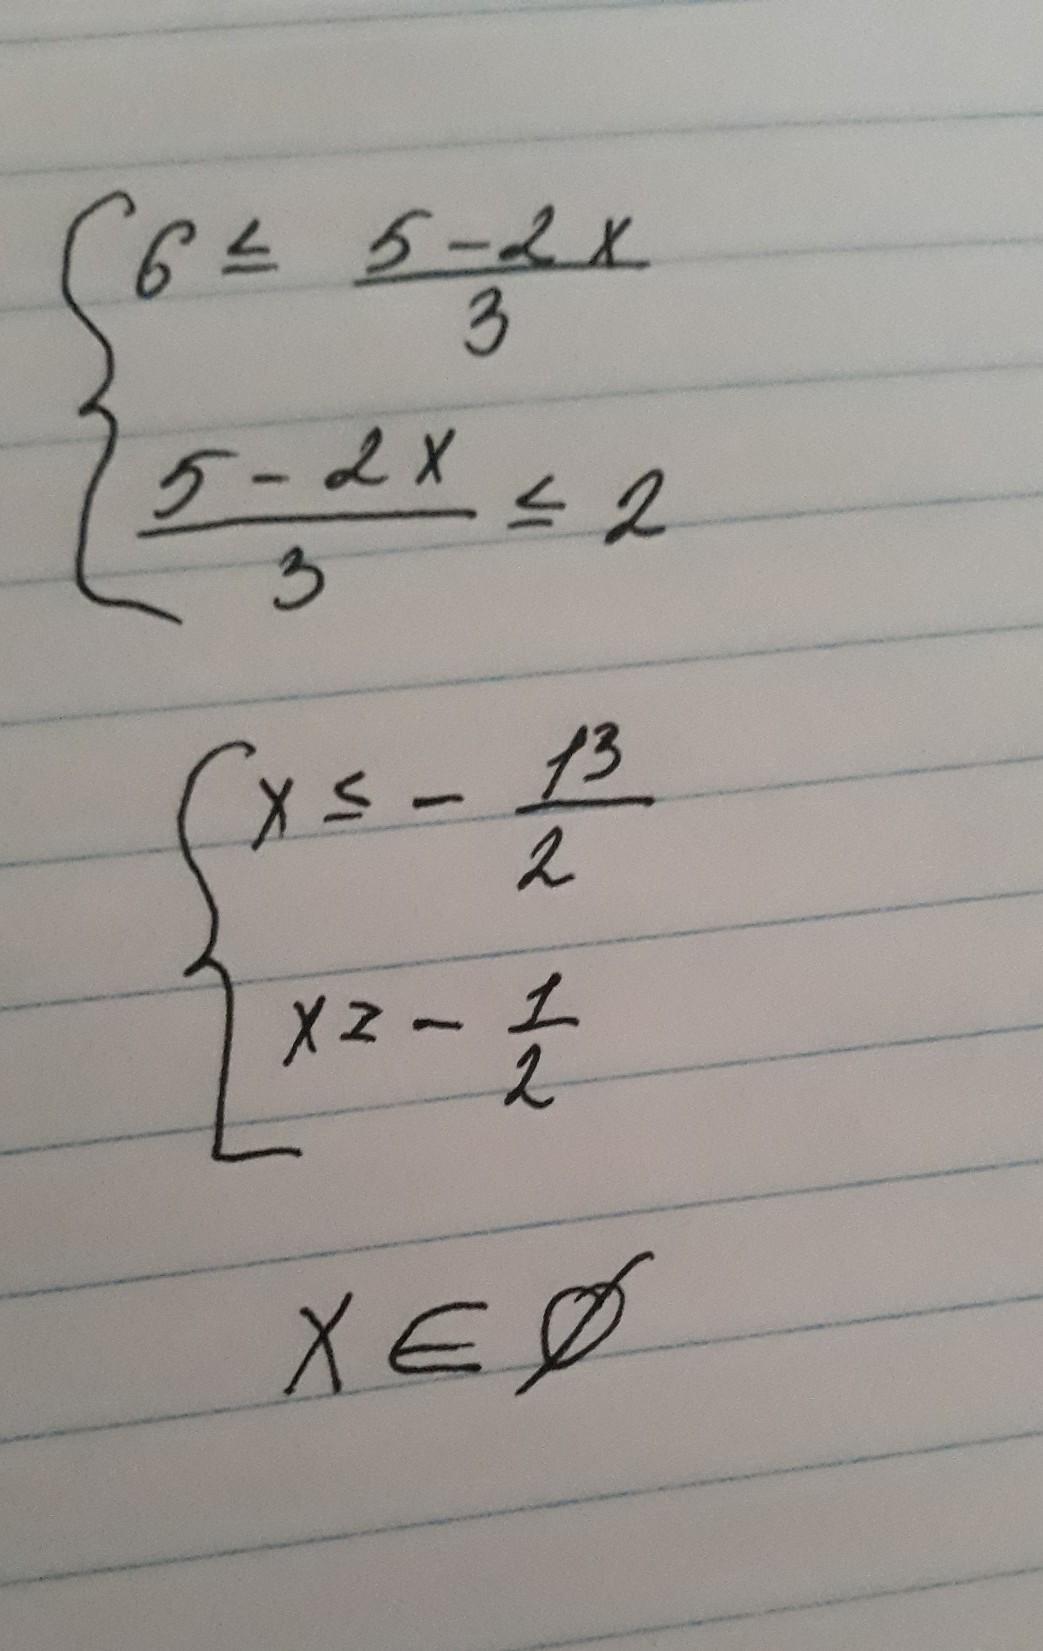 6 ≤ (5-2x)/3
(5-2x)/3 ≤ 2
x ≤ - 13/2
x ≥ - 1/2
x ∈ ∅